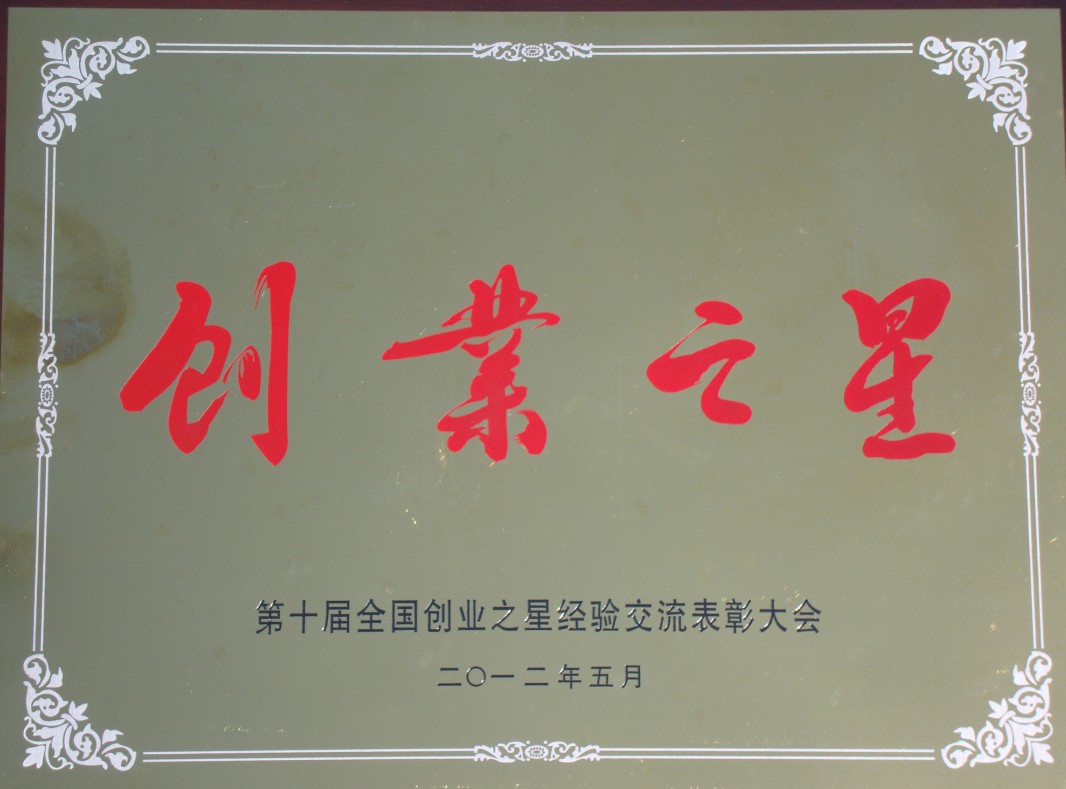 创業之星
第十届全国创业之星经验交流表彰大会
二〇一二年五月